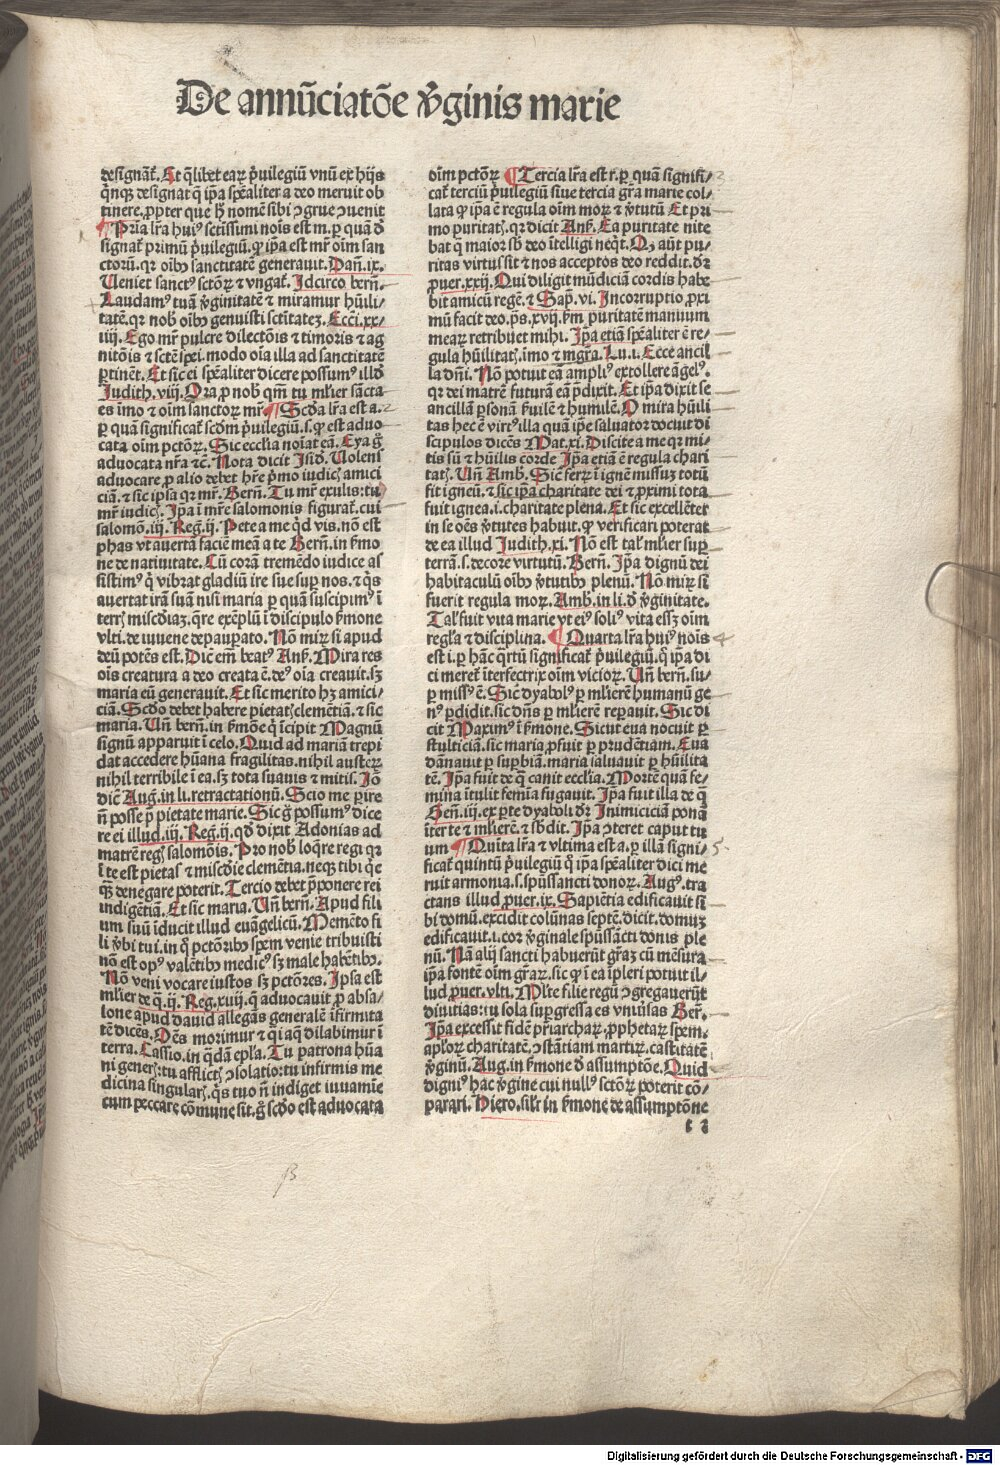 De annūciatōe v̄ginis marie
designāt᷑. Et q̄libet eaꝝ p̄uilegiū vnū ex hijs
qͥnqꝫ designat qͥ ip̄a sp̄ealiter a deo meruit ob
tinere. ꝓpter que hͦ nomē sibi ꝯgrue ꝯuenit
¶ Pria lr̄a huiꝰ sctissimi noīs est m. ꝑ quā ō
signat᷑ primū p̄uilegiū. ꝙ ip̄a est mr̄ oīm san
ctorū. qr oībꝰ sanctitatē generauit. Dañ. ix.
Ueniet sanctꝰ sctōꝝ ⁊ vngat᷑. Idcirco berñ.
Laudamꝰ tuā v̄ginitatē ⁊ miramur hūili/
tatē. qr nob̄ oībꝰ genuisti sctītatez. Ecc̄i. xx/
iiii. Ego mr̄ pulcre dilectōis ⁊ timoris ⁊ ag
nitōis ⁊ sctē spei. modo oīa illa ad sanctitatē
ꝑtinēt. Et sic ei sp̄ealiter dicere possumꝰ illō
Judith. viij. Ora ꝓ nob̄ qm̄ tu mlr̄ier sācta
es īmo ⁊ oīm sanctoꝝ mr̄ ¶ Scd̄a lr̄a est a.
ꝑ quā significat᷑ scd̄m p̄uilegiū. s. ꝙ est aduo
cata oīm pctōꝝ. Sic ecclīa noīat eā. Eya g̊
aduocata nr̄a ⁊c̄. Nota dicit Isid̄. Uolens
aduocare ꝓ alio debet hr̄e p̄mo iudicꝭ amici
ciā. ⁊ sic ipsa qr mr̄. Berñ. Tu mr̄ exulis: tu
mr̄ iudicꝭ. Ip̄a ī mr̄e salomonis figurat᷑. cui
salomō. iij. Reg. ij. Pete a me qͥd vis. nō est
phas vt auertā faciē meā a te Berñ. in s̄mo
ne de natiuitate. Cū corā tremēdo iudice as
sistimꝰ qͥ vibrat gladiū ire sue suꝑ nos. ⁊ qͥs
auertat irā suā nisi maria ꝑ quā suscipimꝰ ī
terrꝭ miscd̄iaz. qͣre exēplū ī discipulo s̄mone
vlti. de iuuene depauꝑato. Nō mirꝝ si apud
deū potēs est. Dic̄ em̄ beatꝰ Anẜ. Mira res
oīs creatura a deo creata ē. deꝰ oīa creauit. sꝫ
maria eū generauit. Et sic merito hꝫ amici/
ciā. Scd̄o debet habere pietatꝭ clemētiā. ⁊ sic
maria. Uñ berñ. in s̄mōe qͥ īcipit Magnū
signū apparuit ī celo. Quid ad mariā trepi
dat accedere hūana fragilitas. nihil austeꝝ
nihil terribile ī ea. sꝫ tota suauis ⁊ mitis. Iō
dic̄ Aug̊. in li. retractationū. Scio me ꝑire
ñ posse p̄ pietate marie. Sic g̊ possumꝰ dice
re ei illud. iij. Reg. ij. qd̄ dixit Adonias ad
matrē regꝭ salomōis. Pro nob̄ loq̄re regi qr
ī te est pietas ⁊ miscd̄ie clemētia. neqꝫ tibi qͥc
qͣꝫ denegare poterit. Tercio debet p̄ponere rei
indigētiā. Et sic maria. Uñ berñ. Apud fili
um suū īducit illud euāgelicū. Memēto fi
li v̄bi tui. in qͦ pctōribꝰ spem venie tribuisti
nō est opꝰ valētibꝰ medicꝰ sꝫ male habētibꝰ.
Nō veni vocare iustos sꝫ pctōres. Ipsa est
mlr̄ier de q̄. ij. Reg. xiiij. q̄ aduocauit ꝓ absa/
lone apud dauid allegās generalē īfirmita
tē dicēs. Oēs morimur ⁊ qͣsi aq̄ dilabimur ī
terra. Cassio. in qͣdā epl̄a. Tu patrona hūa
ni generꝭ: tu afflictꝭ ꝯsolatio: tu infirmis me
dicina singularꝭ. qͣs tuo ñ indiget iuuamīe
cum peccare cōmune sit. g̊ scd̄o est aduocata
oīm pctōꝝ ¶ Tercia lr̄a est r. ꝑ quā signifi/
cat᷑ terciū p̄uilegiū siue tercia gr̄a marie col/
lata ꝙ ip̄a ē regula oīm moꝝ ⁊ v̄tutū Et pri
mo puritatꝭ. qr dicit Anẜ. Ea puritate nite
bat qͣ maior sb̄ deo ītelligi neqͥt. Qꝫ aūt pu/
ritas virtus sit ⁊ nos acceptos deo reddit. dr̄
ꝓuer. xxij. Qui diligit mūdiciā cordis habe
bit amicū regē. ⁊ Sap̄. vi. Incorruptio ꝓxi
mū facit deo. p̄s. xvij. Scd̄m puritatē manuum
mearꝝ retribuet mihi. Ip̄a etiā sp̄ealiter ē re/
gula hūilitatꝭ. īmo ⁊ mgr̄a. Lu. i. Ecce ancil
la dn̄i. Nō potuit eā ampliꝰ extollere āgelꝰ.
qr dei matrē futurā eā p̄dixit. Et ip̄a dixit se
ancillā ꝑsonā s̄uilē ⁊ humilē. O mira hūili
tas hec ē virtꝰ illa quā ip̄e saluator docuit di
scipulos dicēs Mat. xi. Discite a me qr mi/
tis sū ⁊ hūilis corde Ip̄a etiā ē regula chari
tatꝭ. Uñ Amb. Sic ferꝝ ī ignē missuꝫ totū
fit igneū. ⁊ sic ip̄a charitate dei ⁊ ꝓximi tota
fuit ignea. i. charitate plena. Et sic excellēter
in se oēs v̄tutes habuit. ꝙ verificari poterat
de ea illud Judith. xi. Nō est tal᷑ mlr̄ier suꝑ
terrā. s. decore virtutū. Berñ. Ip̄a dignū dei
habitaculū oībꝰ v̄tutibꝰ plenū. Nō mirꝝ si
fuerit regula moꝝ. Amb. in li. d̄ v̄ginitate.
Tal᷑ fuit vita marie vt eiꝰ soliꝰ vita eēt oīm
regl̄a ⁊ disciplina. ¶ Quarta lr̄a huiꝰ noīs
est i. ꝑ hāc qͣrtū significat᷑ p̄uilegiū. qͥ ip̄a di
ci meret᷑ īterfectrix oīm vicioꝝ. Uñ berñ. su/
ꝑ missꝰ ē. Sic dyabolꝰ ꝑ mlr̄ierē humanū ge
nꝰ ꝑdidit. sic dn̄s ꝑ mlr̄ierē reꝑauit. Sic di
cit Maximꝰ ī s̄mone. Sicut eua nocuit ꝑ
stulticiā. sic maria ꝓfuit ꝑ prudētiam. Eua
dānauit ꝑ suꝑbiā. maria saluauit ꝑ hūilita
tē. Ip̄a fuit de q̄ canit ecclīa. Mortē quā fe/
mina ītulit femīa fugauit. Ip̄a fuit illa de qͣ
Geñ. iij. ex ꝑte dyaboli dr̄ Inimiciciā ponā
īter te ⁊ mlr̄ierē. ⁊ sb̄dit. Ip̄a ꝯteret caput tu
um ¶ Quīta lr̄a ⁊ vltima est a. ꝑ illā signi/
ficat᷑ quintū p̄uilegiū qͦ ip̄a sp̄ealiter dici me
ruit armonia. s. spūssancti donoꝝ. Augꝰ. tra
ctans illud ꝓuer. ix. Sapiētia edificauit si
bi domū. excidit colūnas septē. dicit. domuꝫ
edificauit. i. cor v̄ginale spūssācti donis ple
nū. Nā alij sancti habuerūt gr̄aꝫ cū mēsura
ip̄a fontē oīm gr̄aꝝ. sic qͥ ī ea īpleri potuit il/
lud ꝓuer. vlti. Ml̄te filie regū ꝯgregauerūt
diuitias: tu sola suꝑgressa es vniuersas Ber̄.
Ip̄a excessit fidē pr̄iarchaꝝ. ꝓphetaꝝ spem.
apl̄oꝝ charitatē. ꝯstātiam martiꝝ. castitatē
v̄ginū. Aug. in s̄mone d̄ assumptōe. Quid
digniꝰ hac v̄gine cui nullꝰ sctōꝝ poterit cō/
parari. Hiero. silr̄ in s̄mone de assumptōne
t 2
Digitalisierung gefördert durch die Deutsche Forschungsgemeinschaft - DFG